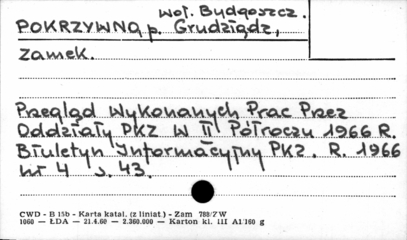 woj. Bydgoszcz.
POKRZYWNO p. Grudziądz,
Zamek.
Przegląd Wykonanych Prac Przez
Oddziały PKZ W II Półroczu 1966 R.
Biuletyn Informacyjny PKZ. R. 1966
nr 4 s. 43.
CWD - B 15b - Karta katal. (z liniat.) - Zam 788/ZW
1060 — ŁDA — 21.4.60 — 2.360.000 — Karton kl. III A1/160 g